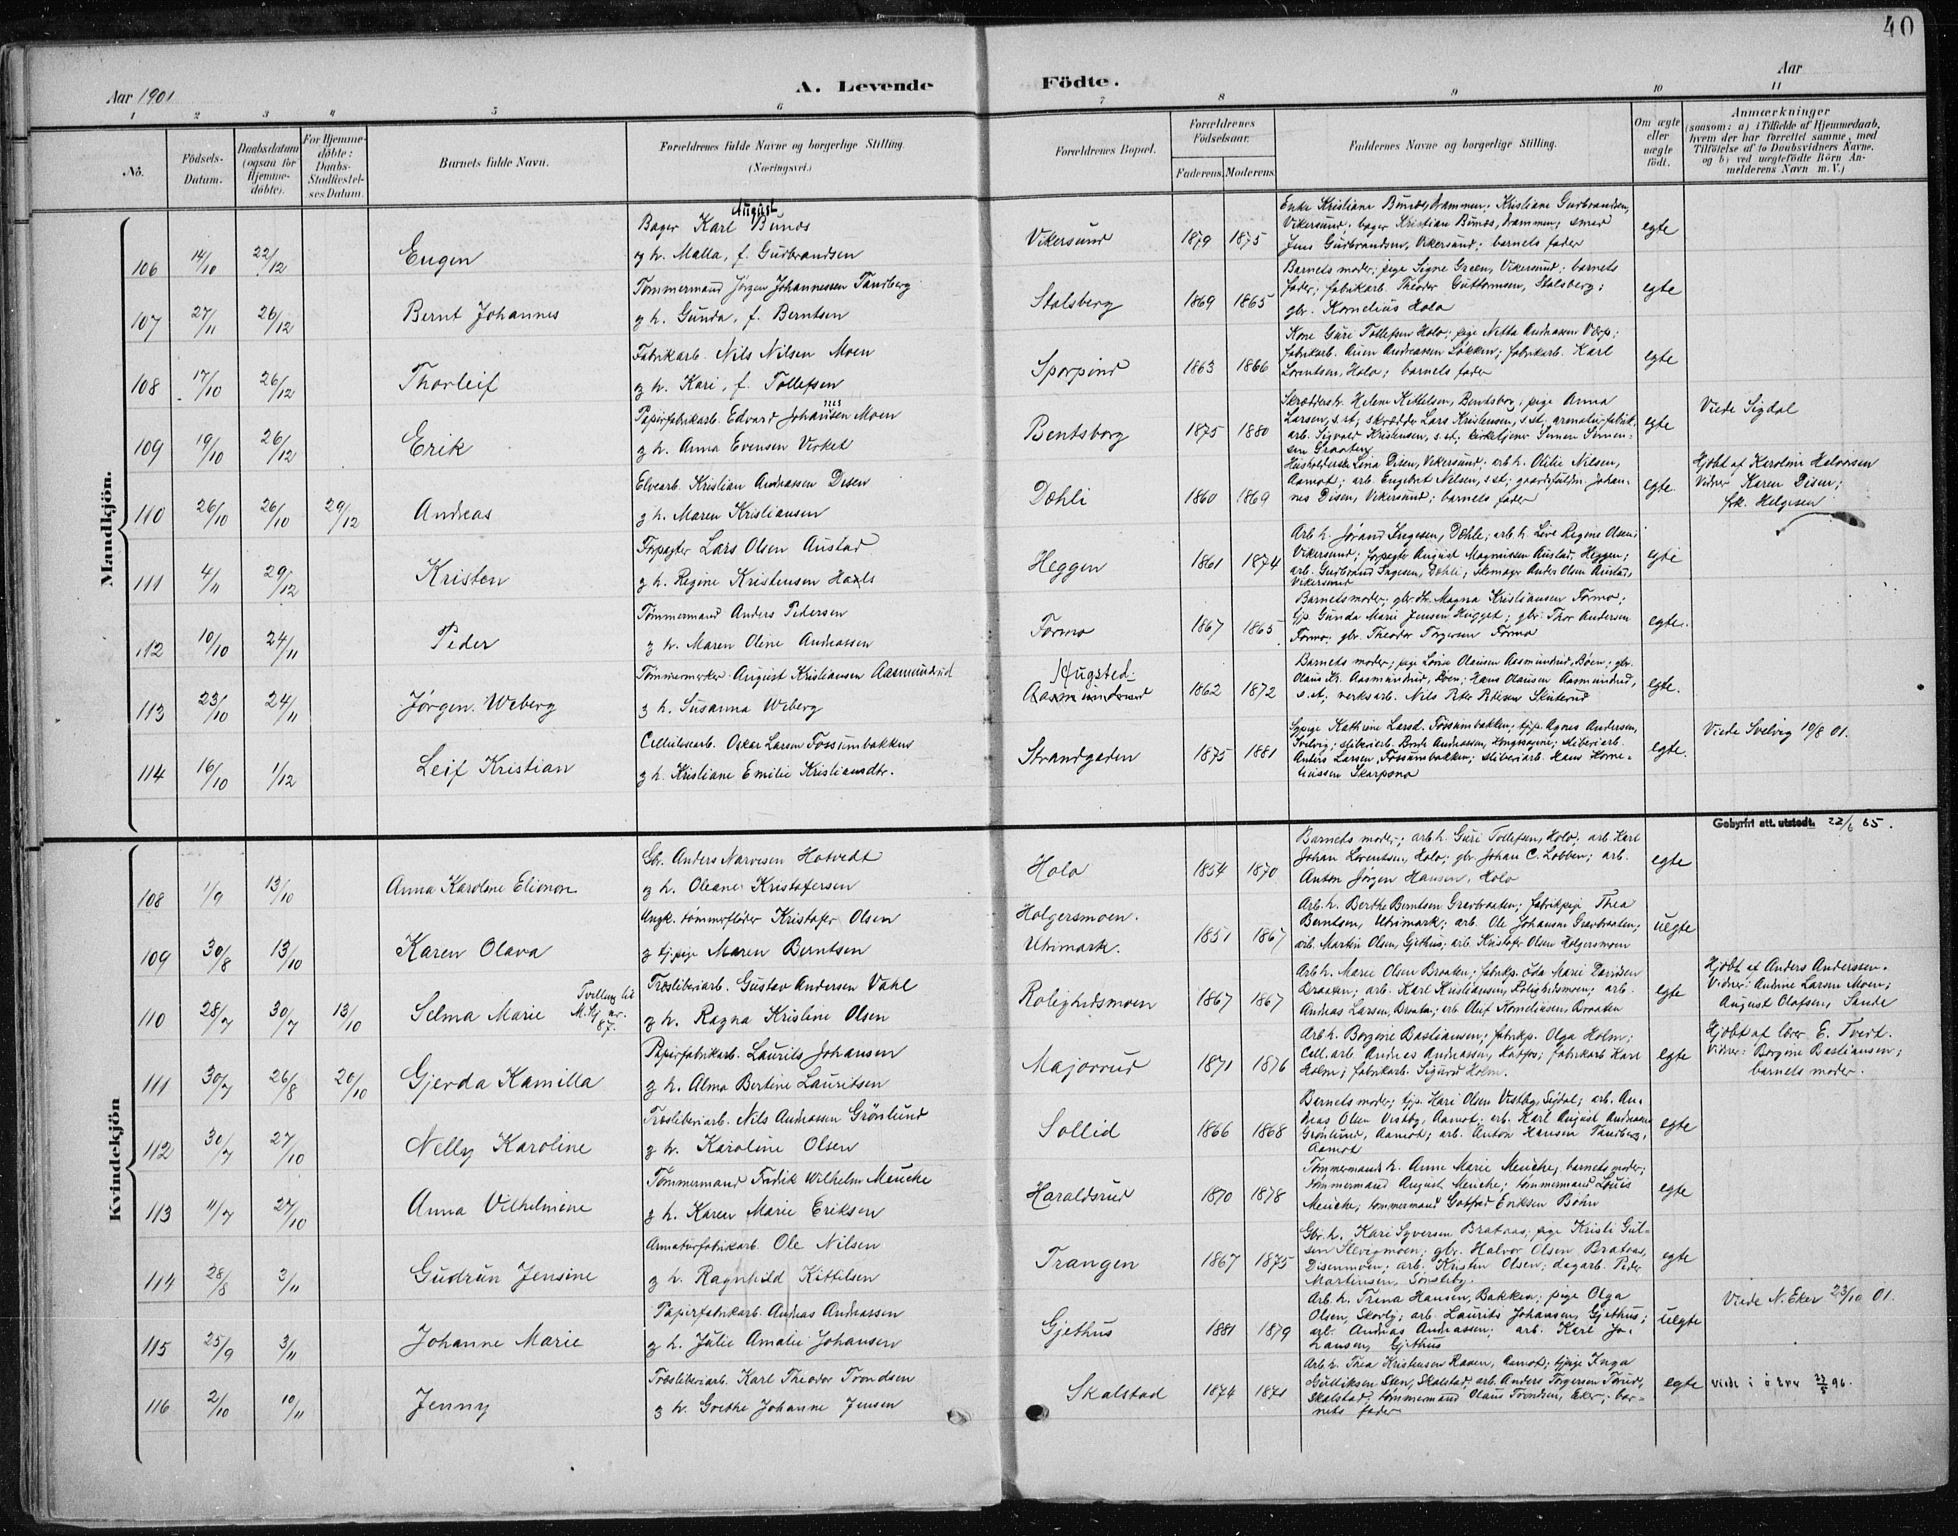 40
Aar 1901
A. Levende Födte.
Aar
1 2 3 4 5 6 7 8 9 10 11
No.
Födsels-Datum.
Daabsdatum (ogsaa for Hjemmedöbte).
For Hjemmedöbte: Daabs-Stadfæstelses Datum.
Barnets fulde Navn.
Forældrenes fulde Navne og borgerlige Stilling. (Næringsvei.)
Forældrenes Bopæl.
Forældrenes Födselsaar.
Faderens. Moderens.
Faddernes Navne og borgerlige Stilling.
Om ægte eller uægte födt.
Anmærkninger
(saasom: a) i Tilfælde af Hjemmedaab, hvem der har forrettet samme, med Tilföielse af to Daabsvidners Navne, og b) ved uægtefödte Börn Anmelderens Navn m. V.)
Mandkjön.
106 14/10 22/12 Eugen
Bager Karl August Bunds
g h. Malla, f. Gudbrandsen
Vikersund 1879 1875
Enke Kristiane Bunds, Drammen; Kristiane Gudbrandsen,
Vikersund; bager Kristian Bunds, Drammen; smed
Jens Gudbrandsen, Vikersund; barnets fader
egte
107 27/11 26/12 Bernt Johannes
Tømmermand Jörgen Johannessen Tandberg
g h. Gunda, f. Berntsen
Stalsberg 1869 1865
Barnets moder; pige Signe Green, Vikersund; barnets
fader; fabrikarb. Theodor Guttormsen, Stalsberg;
gbr. Kornelius Holo
egte
108 17/10 26/12 Thorleif
Fabrikarb. Nils Nilsen Moen
g h. Kari, f. Tollefsen
Sporpind 1863 1866
Kone Guri Tollefsen Holo; pige Netta Andreassen
fabrikarb. Andreassen Løkken; fabrikarb. Karl
Lorentsen, Holo; barnets fader
egte
109 19/10 26/12 Erik
Papirfabrikarb. Edvard Johansen Moen
g h. Anna Evensen Virket
Bentsborg 1875 1880
Helene Kittelsen, Bentsborg; pige Anna
Larsen, s.st; skrædder Lars Kristensen, s.st; armaturfabrik-
arb. Sigvald Kristensen, s.st; kirketjener Simen Simen-
sen Graaberg
egte
Viede Sigdal
110 26/10 26/10 29/12 Andreas
Elvearb. Kristian Andreassen Disen
g h. Maren Kristiansen
Døhli 1860 1869
Husholderske Lina Disen, Vikersund; arb.h. Otilie Nilsen,
Aamot; arb. Engebret Nilsen, s.st; Johan-
nes Disen, Vikersund; barnets fader
egte.
Hjdbt af Karoline Halvorsen
Vidner Karen Disen;
frk. Helgesen
111 4/11 29/12 Kristen
Forpagter Lars Olsen Austad
g h. Regine Kristensen
Heggen 1861 1874
Arb.h. Jørand Ingesen, Døhle; arb.h. Live Regine Olsen;
Vikersund; forpagter August Magnussen Austad, Heggen;
arb. Gudbrand Ingesen, Døhli; Skomager Anders Olsen Austad,
Vikersund
egte
112 10/10 24/11 Peder
Tømmermand Anders Pedersen
g h. Maren Oline Andreassen
Formo 1867 1865
Barnets moder; gbr.dt. Magna Kristiansen Formo;
tjp. Gunda Marie Jensen Hugget; gbr. Thor Andersen
Formo; gbr. Theodor Torgersen Formo
egte.
113 23/10 24/11 Jörgen Weberg
Tømmermerker August Kristiansen Aasmundrud
g h. Susanna Weberg
Hugsted
Aasmundrud
1862 1872
Barnets moder; pige Lovise Olausen Aasmundrud, Böen; gbr.
Olaus Kr. Aasmundrud, Böen; Hans Olausen Aasmundrud,
s.st; verksarb. Nils Peter Skuterud
egte.
114 16/10 1/12 Leif Kristian
Cellulosearb. Oskar Larsen Fossumbakken
g h. Kristiane Emilie Kristiansdtr.
Strandgaden 1875 1881
Sypige Kathrine Larsd. Fossumbakken; tjp. Agnes Andersen,
Svelvig; sliberiarb. Andreassen, sliberiarb.
Anders Larsen, Fossumbakken; sliberiarb. Hans Korne-
liussen Skarpsno
egte.
Viede Svelvig 10/8 01.
Kvindekjön
108 1/9 13/10 Anna Karoline Elionore
Anders Narvesen Hotvedt
g h. Oleane Kristofersen
Holo 1854 1870
Barnets moder; arb.h. Guri Tollefsen, Holo; arb. Karl
Johan Lorentsen, Holo; gbr. Johan C. Lobben; arb.
Anton Jørgen Hansen, Holo
egte
Gebyrfri att. utstedt. 22/6 65.
109 30/8 13/10 Karen Olava
Ungk. tømmerfløder Kristofer Olsen
g tj.pige Maren Berntsen
Holgersmoen.
Utvimark.
1851 1867
Arb.h. Berthe Berntsen Gravbraaten; fabrikpige Thea
Berntsen, Utvimark; arb. Ole Johansen Gravbraaten;
arb. Martin Olsen, Gjethus; arb. Kristofer Olsen Holgersmoen
uegte
110 28/7 30/7 13/10 Selma Marie
Tvilling til
M.kj. nr.
87.
Træsliberiarb. Gustav Andersen Vahl
g h. Ragna Kristine Olsen
Rolighedsmoen 1867 1867
Arb.h. Marie Olsen Braaten; fabrikp. Oda Marie Davidsen
Braaten; arb. Karl Kristiansen, Rolighedsmoen; arb.
Andreas Larsen, Braaten; arb. Oluf Korneliusen, Braaten
egte
Hjdbt af Anders Andersen.
Vidner: Andrine Larsen Moen;
August Olafsen, Sande
111 30/7 26/8 20/10 Gjerda Kamilla
Papirfabrikarb. Laurits Johansen
g h. Alma Bertine Lauritsen
Majorrud 1871 1876
Arb.h. Borgine Bastiansen; fabrikp. Olga Holm;
Cell.arb. Andreas Andreassen, Katfos; fabrikarb. Karl
Holm; fabrikarb. Sigurd Holm.
egte
Hjdbt af lærer E. Tveit.
Vidner: Borgine Bastiansen;
barnets moder.
112 30/7 27/10 Nelly Karoline
Træsliberiarb. Nils Andreassen Grönlund
g h. Karoline Olsen
Sollid 1866 1868
Barnets moder; tjp. Kari Olsen Vestby, Sigdal; arb. An-
dreas Olsen Vestby, Aamot; arb. Karl August Andreassen
Grönlund, Aamot; arb. Anton Hansen Tandberg,
Aamot
egte
113 11/7 27/10 Anna Vilhelmine
Tømmermand Fredrik Wilhelm Meucke
g h. Karen Marie Eriksen
Haraldsrud 1870 1878
Tømmermands h. Anne Marie Meucke, barnets moder;
tømmermand August Meucke; tømmermand Louis
Meucke; tømmermand Gotfred Eriksen Böhn
egte
114 28/8 3/11 Gudrun Jensine
Armaturfabrikarb. Ole Nilsen
g h. Ragnhild Kittilsen
Trangen 1867 1875
Gbr.h. Kari Syversen Brataas; pige Kristi Gul-
sen Slevigmoen; gbr. Halvor Olsen Brataas,
Disenmoen; arb. Kristen Olsen; dagarb. Peder
Martinsen, Sønsteby.
egte
115 25/9 3/11 Johanne Marie
Papirfabrikarb. Andreas Andreassen
g h. Julie Amalie Johansen
Gjethus 1881 1879
Arb.h. Trina Hansen, Bakken; pige Olga
Olsen, Skovly; arb. Laurits Johansen, Gjethus;
arb. Andreas Andreassen; arb. Karl Jo-
hansen, Gjethus
uegte
Viede N. Eker 23/10 01.
116 2/10 10/11 Jenny
Træsliberiarb. Karl Theodor Trondsen
g h. Grethe Johanne Jensen
Skalstad 1874 1871
Arb.h. Thea Kristensen Raaen, Aamot; tjpige Inga
Gulliksen Skalstad; arb. Anders Torgersen
Skalstad; tømmermand Olaus Trondsen, Eker; bar-
nets fader
egte
96.